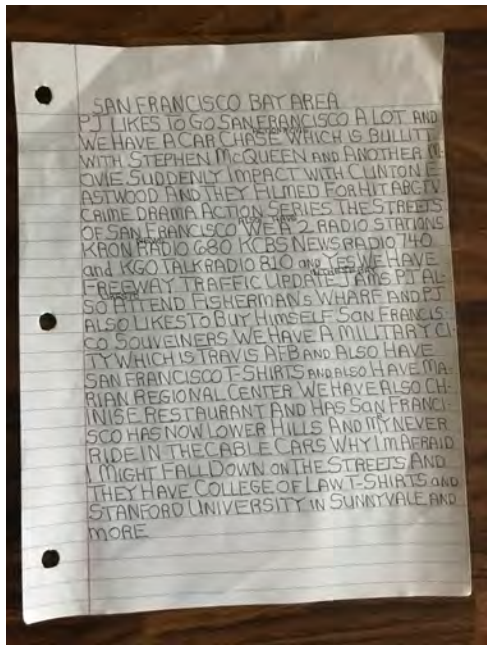 SAN FRANCISCO BAY AREA
PJ LIKES TO GO SAN FRANCISCO A LOT AND
WE HAVE A CAR CHASE WHICH IS BULLITT
WITH STEPHEN McQUEEN AND ANOTHER M-
OVIE SUDDENLY IMPACT WITH CLINTON E-
ASTWOOD AND THEY FILMED FOR HIT ABC TV
CRIME DRAMA ACTION SERIES THE STREETS
ALSO HAVE
OF SAN FRANCISCO WE A 2 RADIO STATIONS
KRON RADIO 680 KCBS NEWSRADIO 740
and KGO TALKRADIO 810 and YES WE HAVE
FREEWAY TRAFFIC UPDATE JAMS PJ AL-
SO ATTEND FISHERMAN'S WHARF AND PJ
ALSO LIKES TO BUY HIMSELF SAN FRANCIS-
CO SOUVEINERS WE HAVE A MILITARY CI-
TY WHICH IS TRAVIS AFB AND ALSO HAVE
SAN FRANCISCO T-SHIRTS AND ALSO HAVE MA-
RIAN REGIONAL CENTER WE HAVE ALSO CH-
INISE RESTAURANT AND HAS SAN FRANCI-
SCO HAS NOW LOWER HILLS AND MY NEVER
RIDE IN THE CABLE CARS WHY I'M AFRAID
I MIGHT FALL DOWN ON THE STREETS AND
THEY HAVE COLLEGE OF LAW T-SHIRTS and
STANFORD UNIVERSITY IN SUNNYVALE AND
MORE